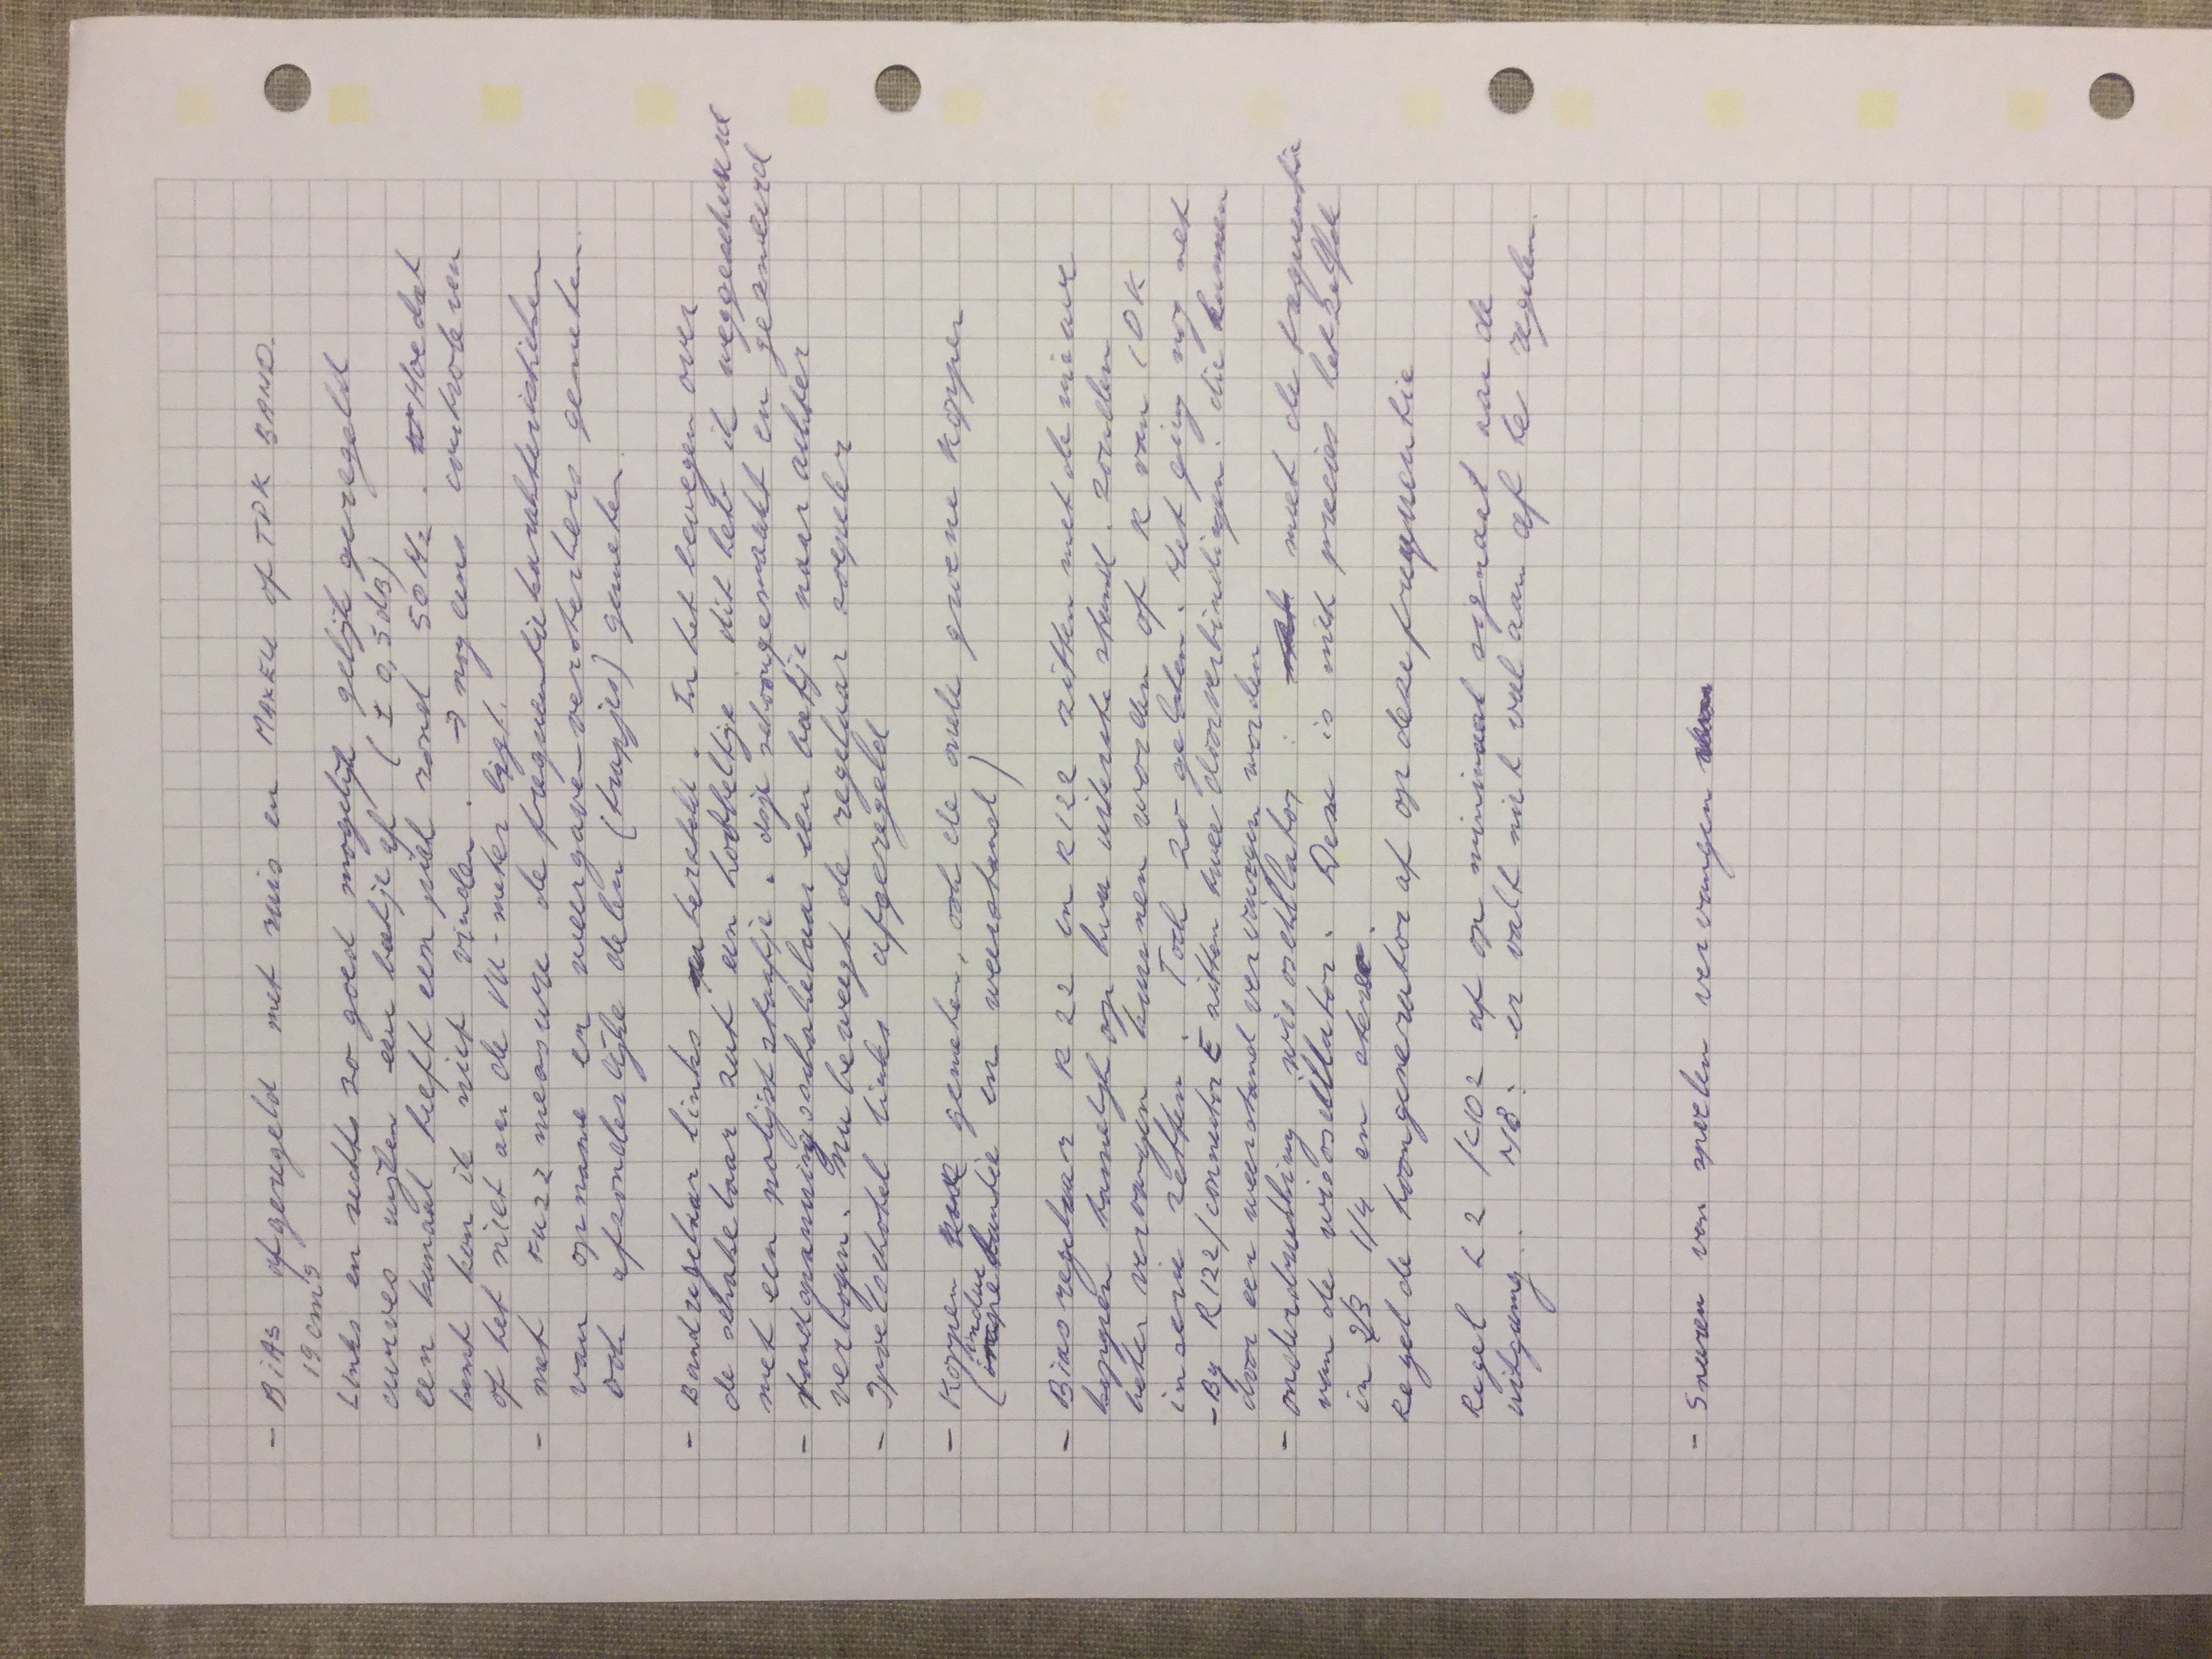 - BIAS afgeregeld met ruis en MAXELL of TDK BAND.
19 cm/s
Links en rechts zo goed mogelijk gelijk geregeld
curves wijken een beetje af (± 0,5 dB)
een kanaal heeft een piek rond 50 Hz. Hoe dat
komt kon ik niet vinden. → nog eens controleren
of het niet aan de VU-meter ligt.
- met fuzz measure de frequentiekarakteristieken
van opname en weergave-versterkers gemeten.
ook afzonderlijke delen (trapjes) gemeten.
- Bandregelaar links kraakte. In het bewegen over
de schakelaar zat een hobbeltje. dit heb ik weggeschuurd
met een polijst staafje. asje schoongemaakt en gesmeerd
- bandspanningsschakelaar een beetje naar achter
verbogen. Nu beweegt de regelaar soepeler
- spoelschotel links afgeregeld
- Koppen gemeten, ook de oude groene koppen
(inductantie en weerstand)
- Biasregelaar R22 en R122 zitten met de nieuwe
koppen namelijk op hun uiterste stand. zouden
beter vervangen kunnen worden of R van 10K
in serie zetten. Toch zo gelaten. Het ging nog net
- By R122/connector E zitten twee doorverbindingen. die kunnen
door een weerstand vervangen worden
- onderdrukking wis oscillator: met de frequentie
van de wisoscillator. Deze is niet precies hetzelfde
in 2/3 1/4 en stereo.
Regel de toongenerator af op deze frequentie
Regel L2 L102 af op minimaal signaal aan de
uitgang. NB: er valt niet veel aan af te regelen.
- Snaren van spoelen vervangen